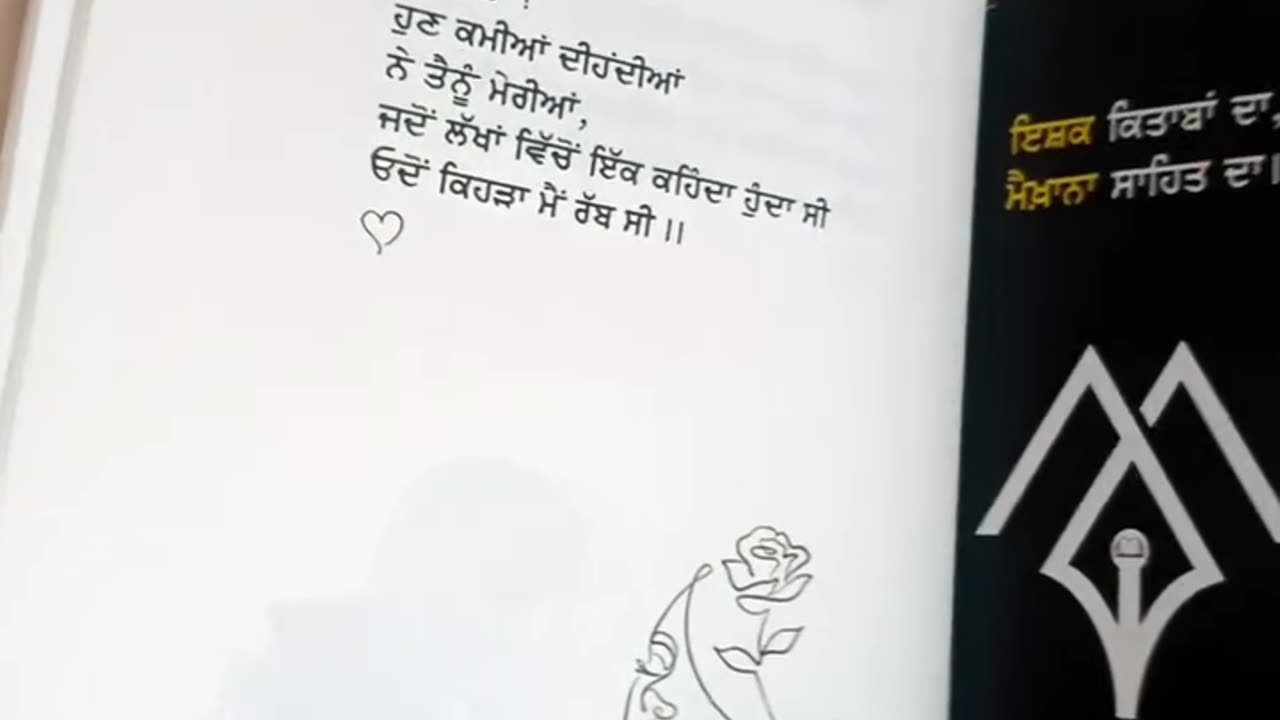 ਹੁਣ ਕਮੀਆਂ ਦੀਹਂਦੀਆਂ
ਨੇ ਤੈਨੂੰ ਮੇਰੀਆਂ,
ਜਦੋਂ ਲੱਖਾਂ ਵਿੱਚੋਂ ਇੱਕ ਕਹਿੰਦਾ ਹੁੰਦਾ ਸੀ
ਓਦੋਂ ਕਿਹੜਾ ਮੈਂ ਰੱਬ ਸੀ ॥
ਇਸ਼ਕ ਕਿਤਾਬਾਂ ਦਾ,
ਮੈਖ਼ਾਨਾ ਸਾਹਿਤ ਦਾ।